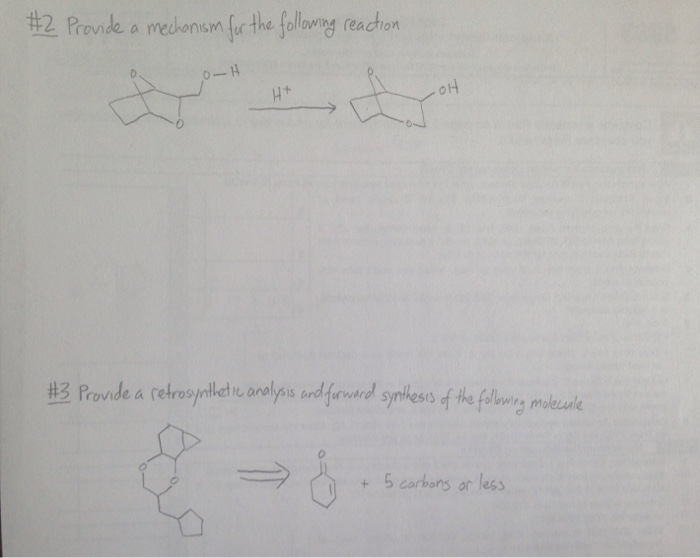 #2 Provide a mechanism for the following reaction
O O-H
H+
O OH
O
O
#3 Provide a retrosynthetic analysis and forward synthesis of the following molecule
O
O O
+ 5 carbons or less